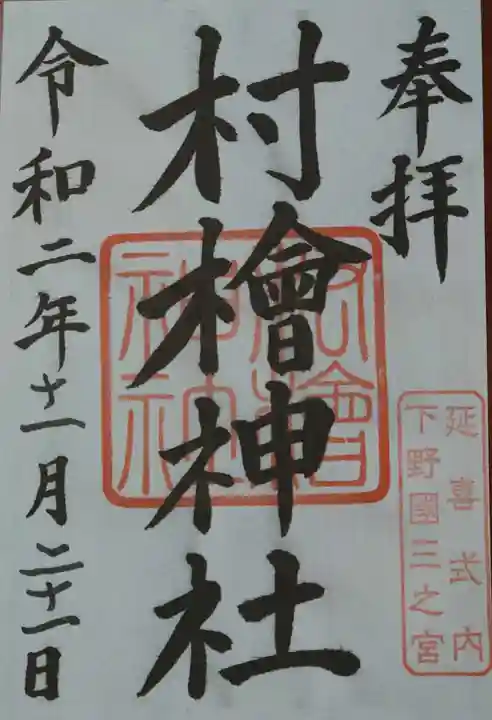 奉拝
延喜式内
下野國三之宮
村檜神社
村檜
神社
令和二年十一月二十一日